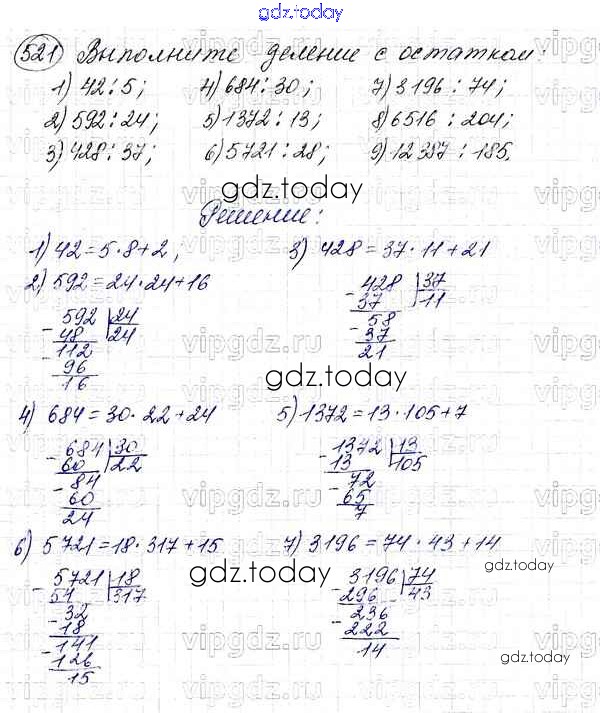 gdz.today
521 Выполните деление с остатком:
1) 42:5; 4) 684:30; 7) 3196:74;
2) 592:24; 5) 1372:13; 8) 6516:204;
3) 428:37; 6) 5721:28; 9) 12387:185.
gdz.today
Решение:
1) 42=5·8+2; 3) 428=37·11+21
2) 592=24·24+16
592 24 428 37
- 48 24 - 37 11
- 112 - 58
96 37
16 21
gdz.today
4) 684=30·22+24 5) 1372=13·105+7
- 684 30 - 1372 13
60 22 13 105
- 84 - 72
60 65
24 7
6) 5721=18·317+15 7) 3196=74·43+14
gdz.today
gdz.today
- 5721 18 - 3196 74
54 317 296 43
- 32 - 236
18 222
- 141 14
126
15
gdz.today